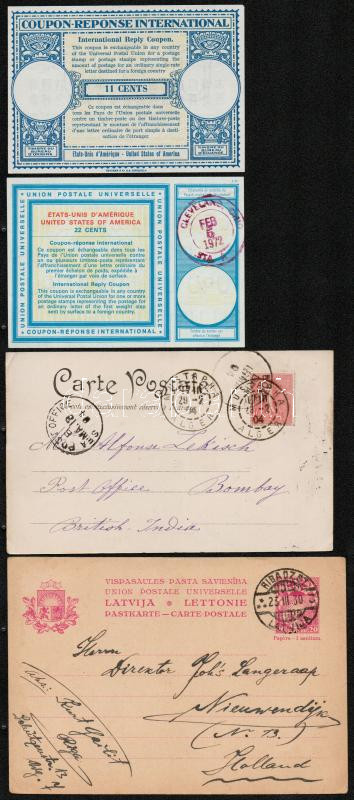 COUPON-RÉPONSE INTERNATIONAL
International Reply Coupon.
This coupon is exchangeable in any country
of the Universal Postal Union for a postage
stamp or postage stamps representing the
amount of postage for an ordinary single-rate
letter destined for a foreign country
11 CENTS
Ce coupon est échangeable dans tous
les Pays de l'Union Postale Universelle
contre un timbre-poste ou des timbres-poste
représentant le montant de l'affranchissement
d'une lettre ordinaire de port simple à desti-
nation de l'étranger.
États-Unis d'Amérique - United States of America
UNION POSTALE UNIVERSELLE
UNION POSTALE UNIVERSELLE
ÉTATS-UNIS D'AMÉRIQUE
UNITED STATES OF AMERICA
22 CENTS
Coupon-réponse international
Ce coupon est échangeable dans tous les
Pays de l'Union postale universelle contre
un ou plusieurs timbres-poste représentant
l'affranchissement d'une lettre ordinaire du
premier échelon de poids, expédiée à
l'étranger par voie de surface.
International Reply Coupon
This coupon is exchangeable in any country
of the Universal Postal Union for one or more
postage stamps representing the postage for
an ordinary letter of the first weight step
sent by surface to a foreign country.
COUPON-RÉPONSE INTERNATIONAL
FEB
1972
STA.
Carte Postale
MUSTAPHA
ALGER
MUSTAPHA
ALGER
04
POST OFFICE
Alfonse
Post Office Bombay
British India
VISPASAULES PASTA SAVIENĪBA
UNION POSTALE UNIVERSELLE
LATVIJA LETTONIE
PASTKARTE - CARTE POSTALE
23 III 30
LATVIJA
20
Papīrs - 1 santims.
Herrn
Direktor Joh's Langeraap
Nieuwendijk
(N. 13.)
Holland
Riga